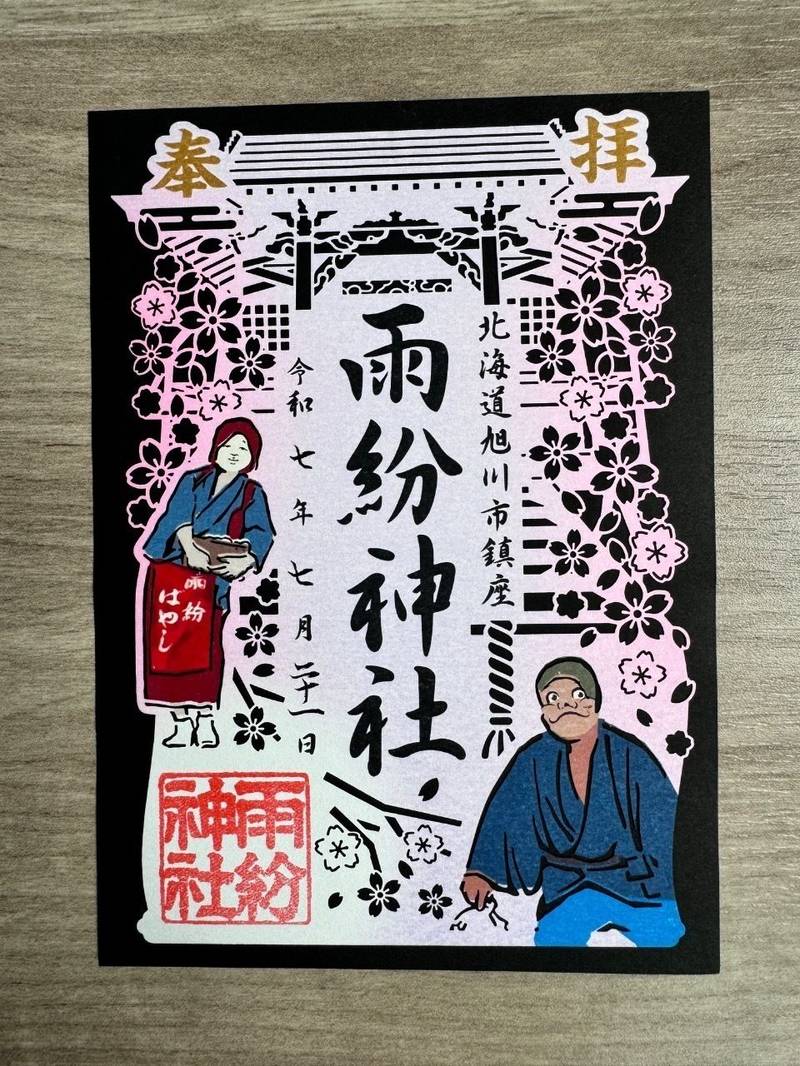 奉拝
北海道旭川市鎮座
雨紛神社
令和七年七月二十一日
雨紛
はやし
雨紛
神社